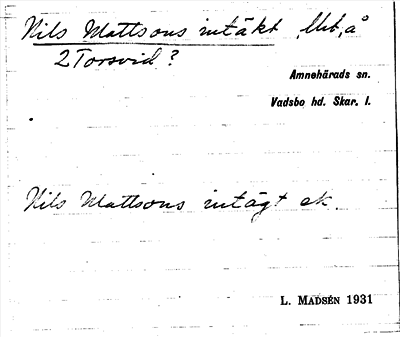 Nils Mattsons intäkt, Ubt, å
2 Torsvid?
Amnehärads sn.
Vadsbo hd. Skar. l.
Nils Mattsons intägt ek.
L. MADSÉN 1931